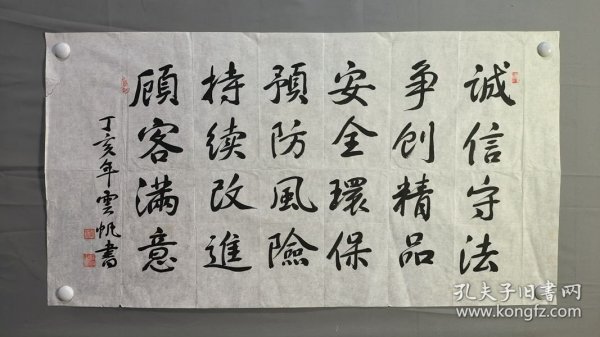 誠信守法
争创精品
安全環保
預防風險
持续改進
顧客满意
丁亥年雲帆書
孔夫子旧書网
www.kongfz.com